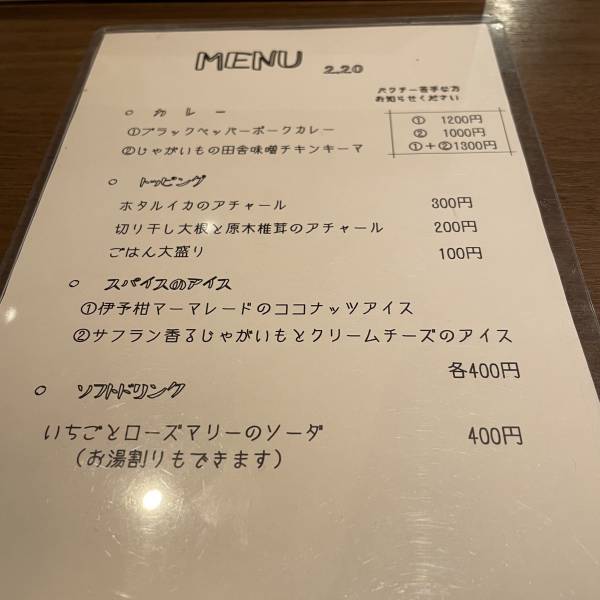 MENU 2.20
パクチー苦手な方
お知らせください
○ カレー
①ブラックペッパーポークカレー ① 1200円
②じゃがいもの田舎味噌チキンキーマ ② 1000円
①+②1300円
○ トッピング
ホタルイカのアチャール 300円
切り干し大根と原木椎茸のアチャール 200円
ごはん大盛り 100円
○ スパイスのアイス
①伊予柑マーマレードのココナッツアイス
②サフラン香るじゃがいもとクリームチーズのアイス
各400円
○ ソフトドリンク
いちごとローズマリーのソーダ 400円
(お湯割りもできます)